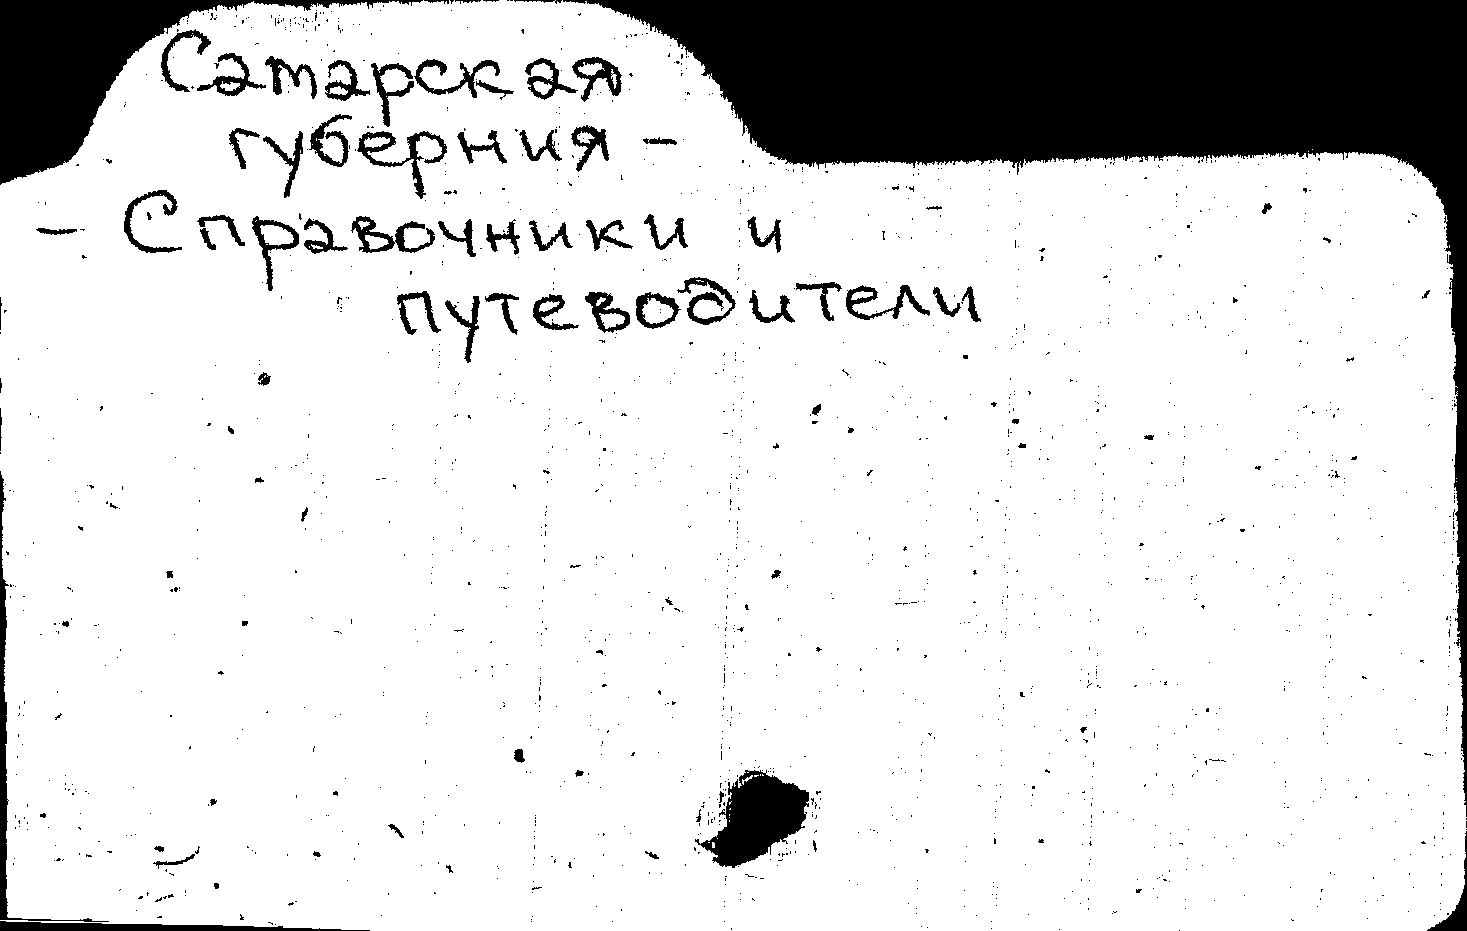 Самарская
губерния -
- Справочники и
путеводители